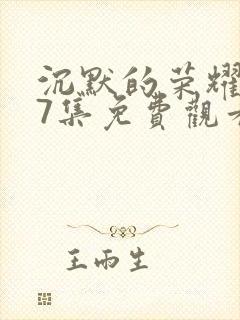 沉默的荣耀
7集免費觀看
王雨生